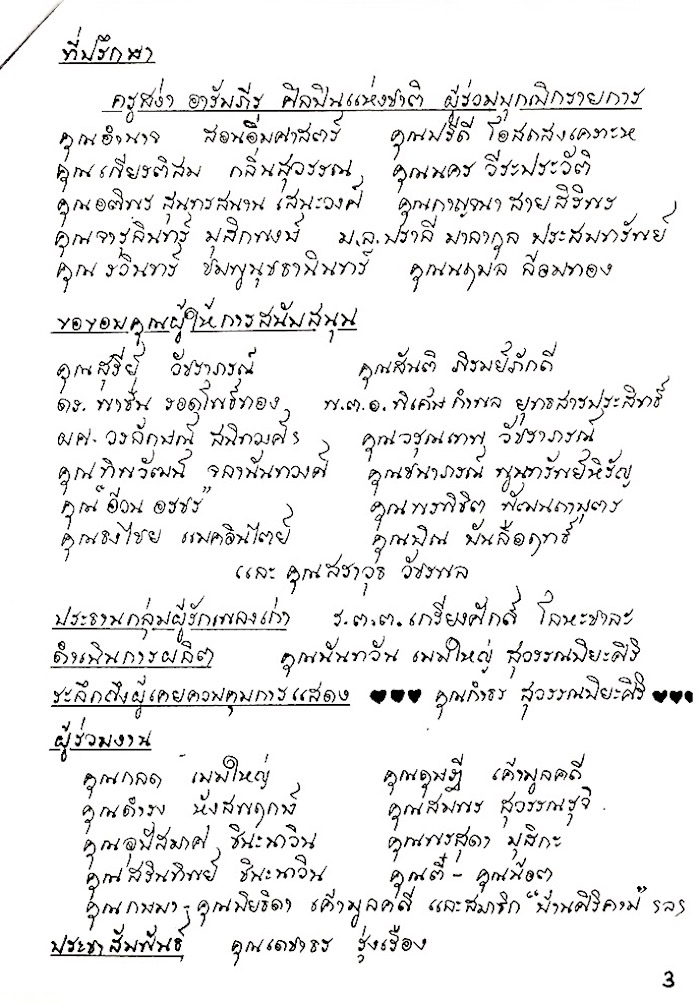 ที่ปรึกษา
ครูสง่า อารัมภีร ศิลปินแห่งชาติ ผู้ร่วมบุกเบิกรายการ
คุณอำนาจ สอนอิ่มศาสตร์ คุณปรีดี โอสถสงเคราะห์
คุณเกียรติสม กลิ่นสุวรรณ คุณนคร วีระประวัติ
คุณอติพร สุนทรสนาน เสนะวงศ์ คุณกาญจนา สายสิริพร
คุณจารุลินทร์ มุสิกพงษ์ ม.ล.ปราลี มาลากุล ประสมทรัพย์
คุณรวินทร์ ชมพูนุชธานินทร์ คุณนฤมล ล้อมทอง
ขอขอบคุณผู้ให้การสนับสนุน
คุณสุรีย์ วัชราภรณ์ คุณสันติ ภิรมย์ภักดี
ดร. พาชื่น รอดโพธิ์ทอง พ.ต.อ.พิเศษ กำพล ยุทธสารประสิทธิ์
ผศ. วรลักษณ์ สนิทวงศ์ฯ คุณวรุณเทพ วัชราภรณ์
คุณทิพวัฒน์ จลานันทวงศ์ คุณชนาภรณ์ พูนทรัพย์หิรัญ
คุณ "อ๊วน อรชร" คุณพรพิชิต พัฒนถาบุตร
คุณธงไชย แมคอินไตย์ คุณพิณ พันลือฤทธิ์
และ คุณสราวุธ วัชรพล
ประธานกลุ่มผู้รักเพลงเก่า ร.ต.ต.เกรียงศักดิ์ โลหะชาละ
ดำเนินการผลิต คุณนันทวัน เมฆใหญ่ สุวรรณปิยะศิริ
ระลึกถึงผู้เคยควบคุมการแสดง ♥♥♥ คุณกำธร สุวรรณปิยะศิริ ♥♥♥
ผู้ร่วมงาน
คุณกลด เมฆใหญ่ คุณดุษฎี เค้ามูลคดี
คุณดำรง หังสพฤกษ์ คุณสมพร สุวรรณรุจิ
คุณอุปัสมาศ ชินะนาวิน คุณพรสุดา มุสิกะ
คุณสรินทิพย์ ชินะนาวิน คุณตี๋ - คุณน้อต
คุณเกษมา - คุณปิยธิดา เค้ามูลคดี และสมาชิก "บ้านศิริคาม" ฯลฯ
ประชาสัมพันธ์ คุณเดชาธร รุ่งเรือง
3